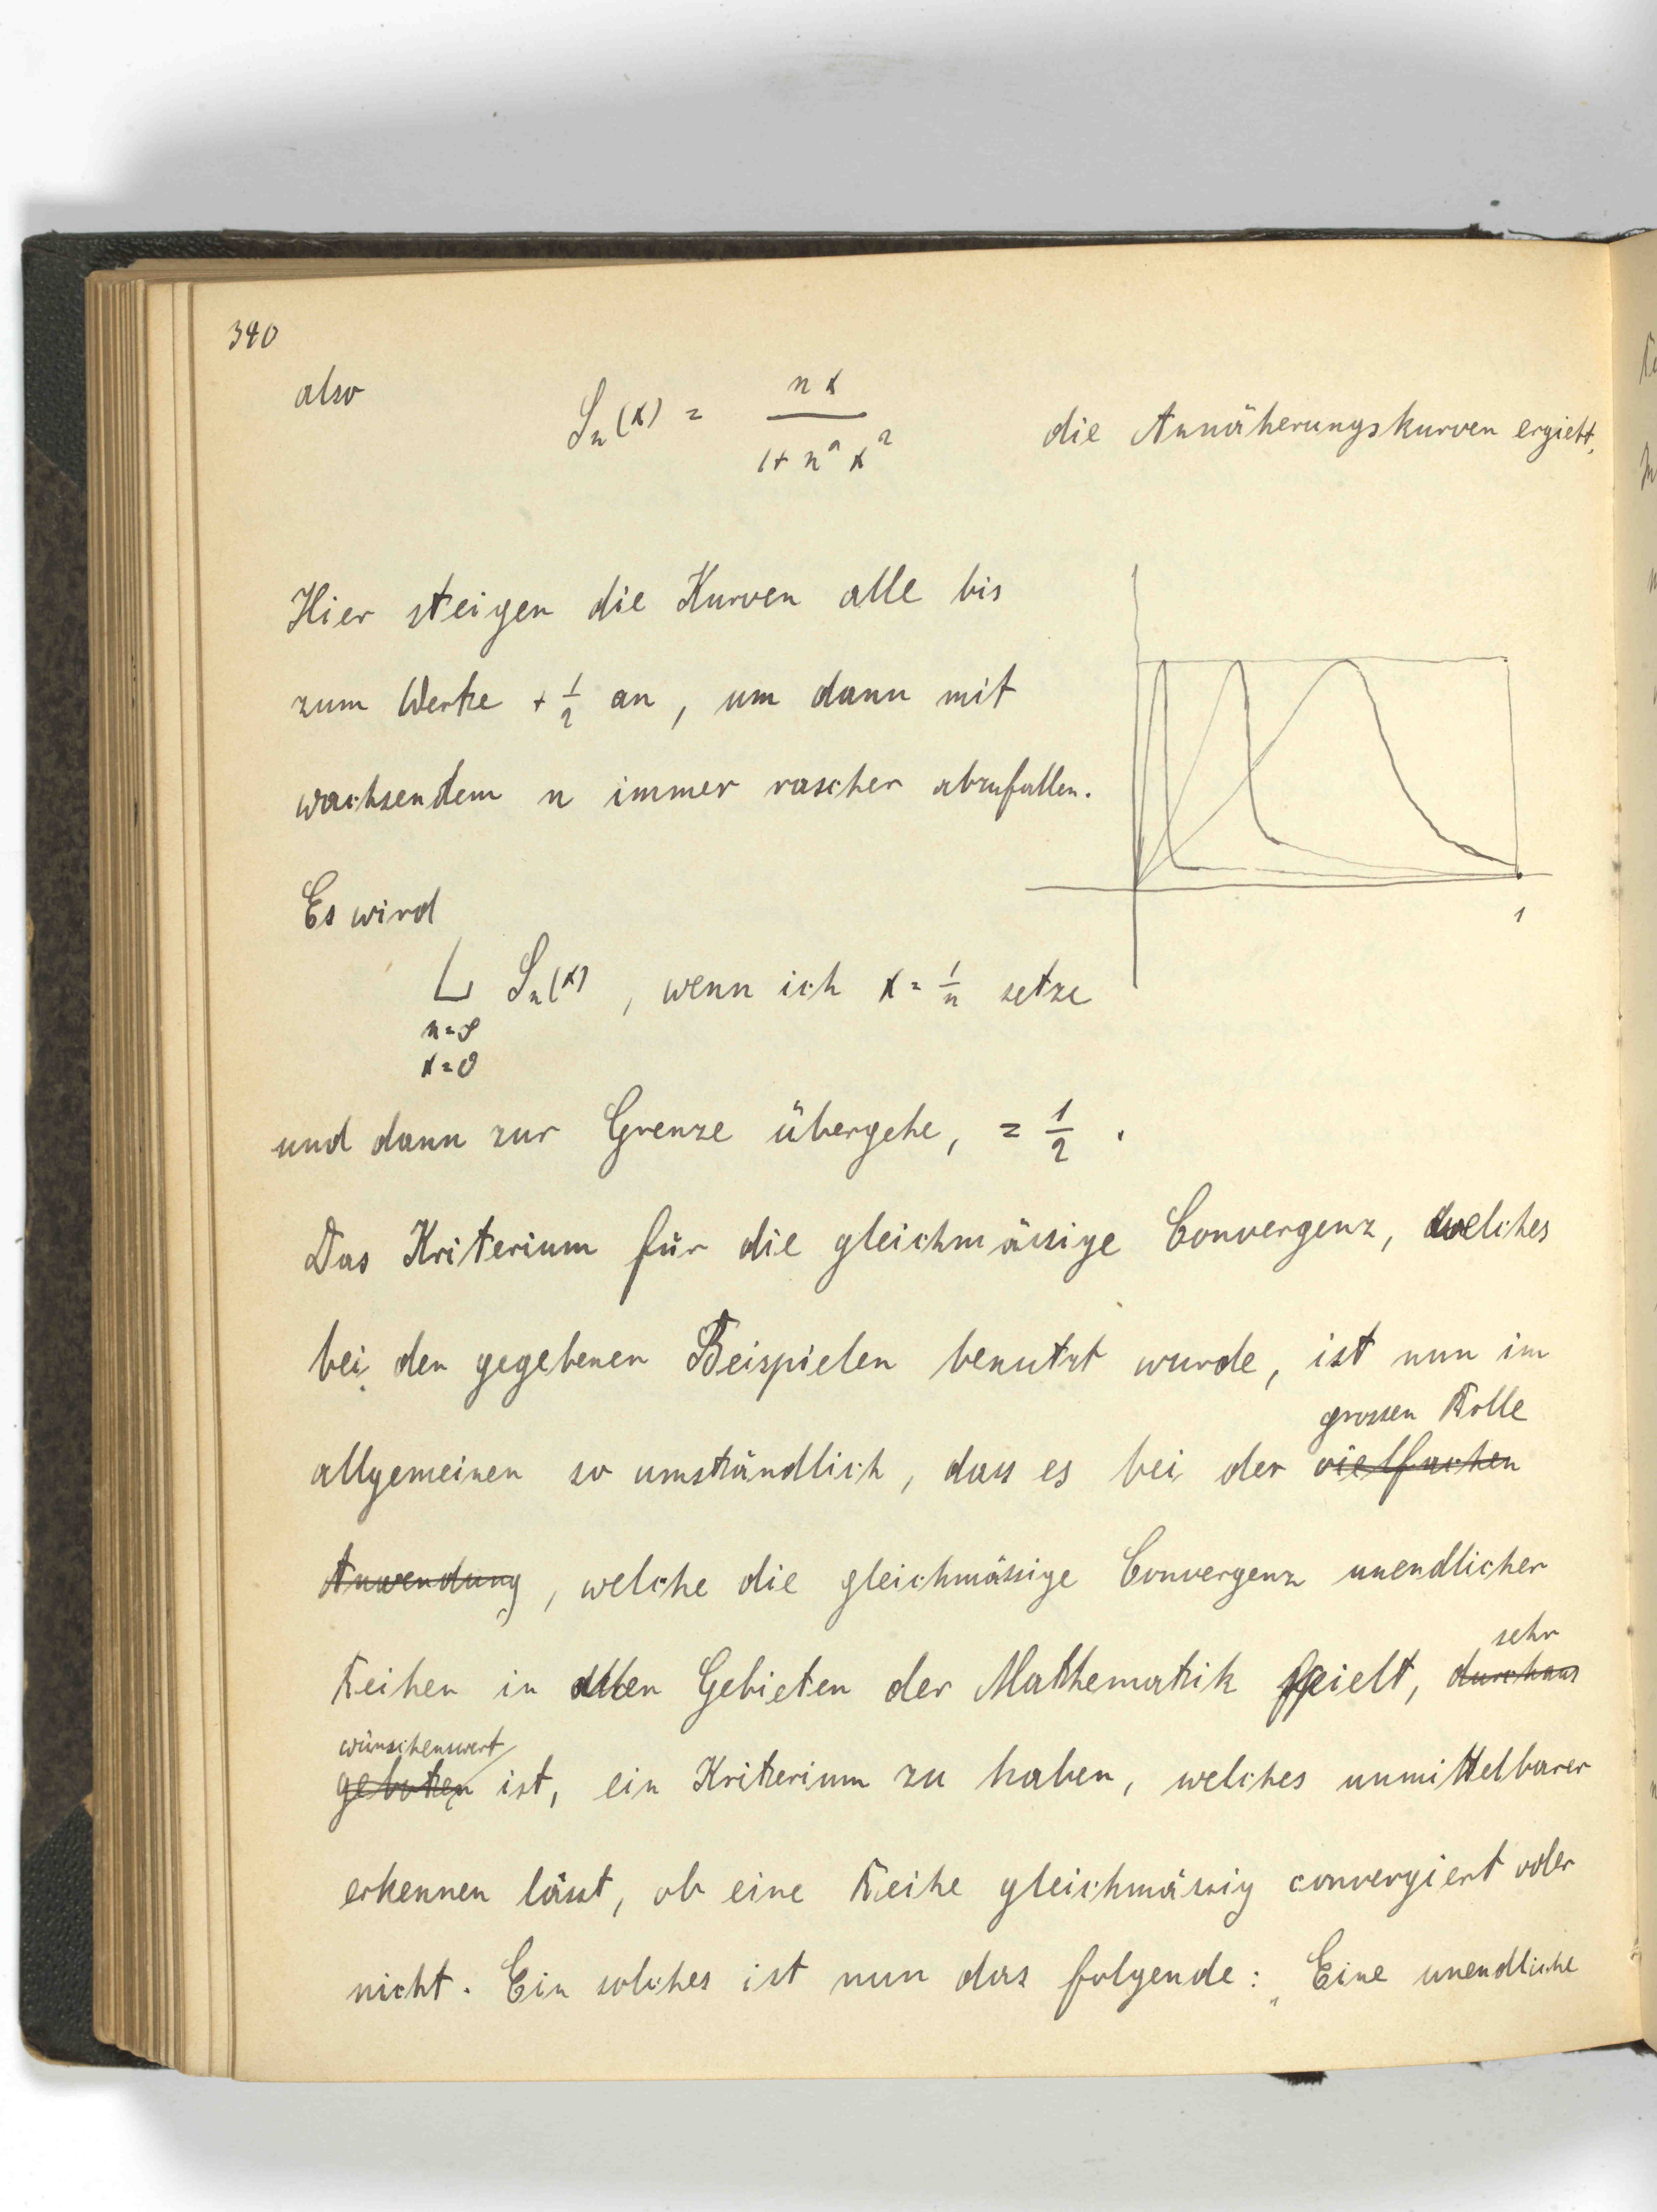 340
also S_n(x) = \frac{nx}{1+n²x²} die Annäherungskurven ergiebt.
Hier steigen die Kurven alle bis
zum Werte + 1/2 an, um dann mit
wachsendem n immer rascher abzufallen.
1
Es wird
L S_n(x), wenn ich x = 1/n setze
n=∞
x=0
und dann zur Grenze übergehe, = 1/2.
Das Kriterium für die gleichmässige Convergenz, welches
bei den gegebenen Beispielen benutzt wurde, ist nun im
grossen Rolle
allgemeinen so umständlich, dass es bei der vielfachen
Anwendung, welche die gleichmässige Convergenz unendlicher
sehr
Reihen in allen Gebieten der Mathematik spielt, durchaus
wünschenswert
geboten ist, ein Kriterium zu haben, welches unmittelbarer
erkennen lässt, ob eine Reihe gleichmässig convergiert oder
nicht. Ein solches ist nun das folgende: „Eine unendliche